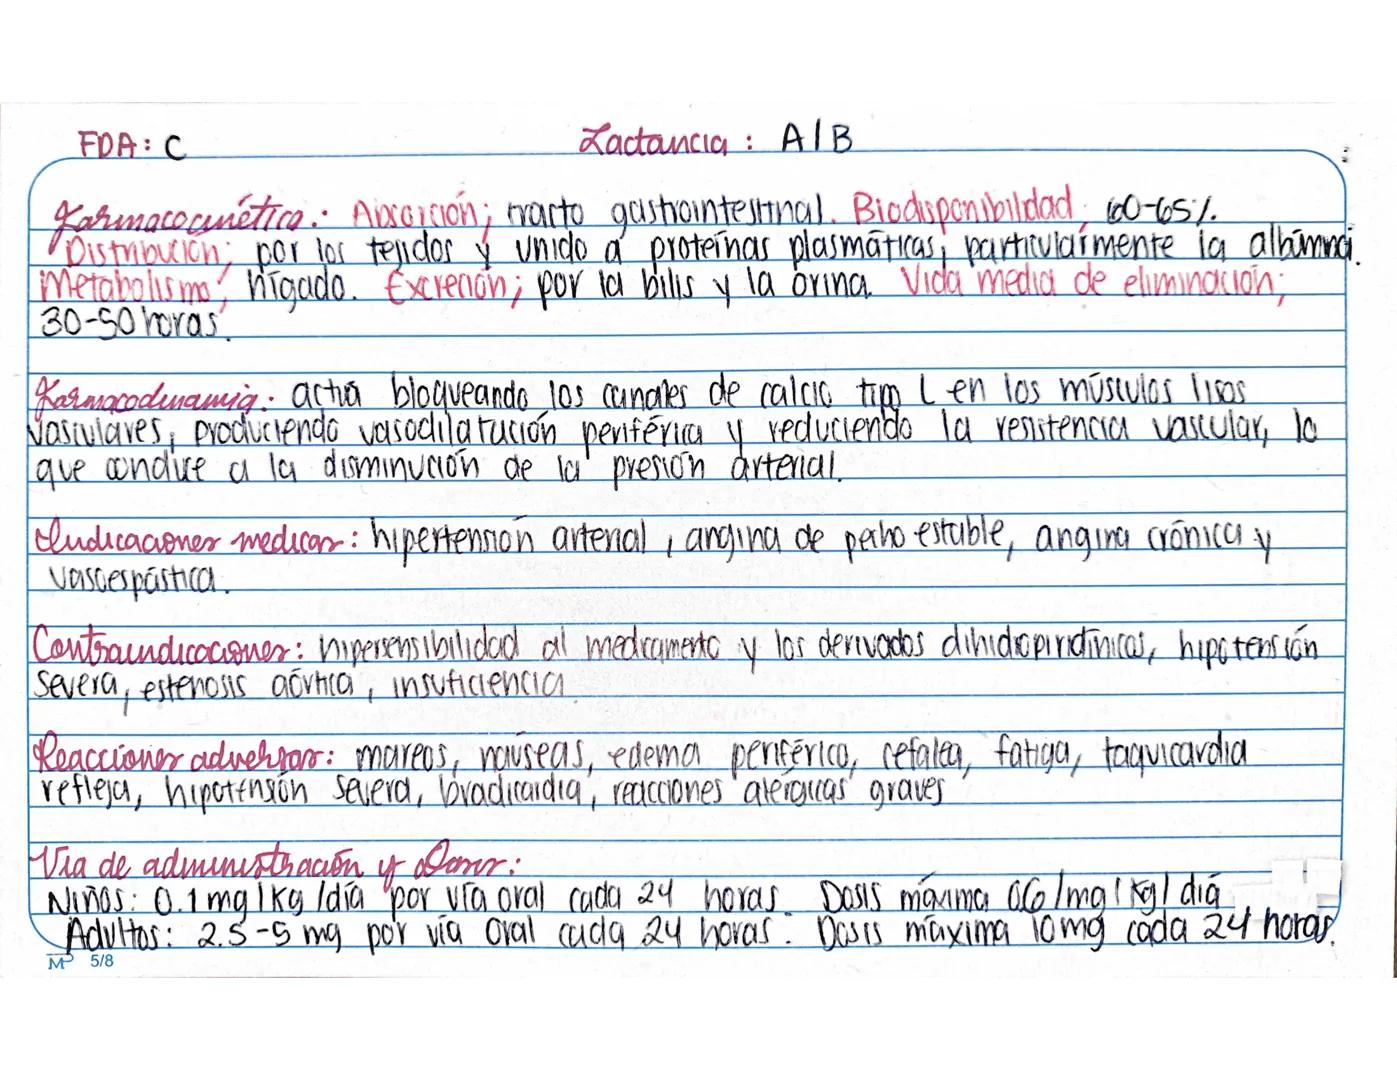 FDA: C Lactancia: A/B
Farmacocinética: Absorción; tracto gastrointestinal. Biodisponibilidad; 60-65%.
Distribución; por los tejidos y unido a proteínas plasmáticas, particularmente la albúmina.
Metabolismo; hígado. Excreción; por la bilis y la orina. Vida media de eliminación;
30-50 horas.
Farmacodinamia: actúa bloqueando los canales de calcio tipo L en los músculos lisos
vasculares, produciendo vasodilatación periférica y reduciendo la resistencia vascular, lo
que conduce a la disminución de la presión arterial.
Indicaciones medicas: hipertensión arterial, angina de pecho estable, angina crónica y
vasoespástica.
Contraindicaciones: hipersensibilidad al medicamento y los derivados dihidropiridínicos, hipotensión
severa, estenosis aórtica, insuficiencia
Reacciones adversas: mareos, náuseas, edema periférico, cefalea, fatiga, taquicardia
refleja, hipotensión severa, bradicardia, reacciones alérgicas graves
Via de administración y Dosis:
Niños: 0.1 mg/kg/día por vía oral cada 24 horas. Dosis máxima 0.6/mg/kg/día
Adultos: 2.5-5 mg por vía oral cada 24 horas. Dosis máxima 10mg cada 24 horas.
MP 5/8